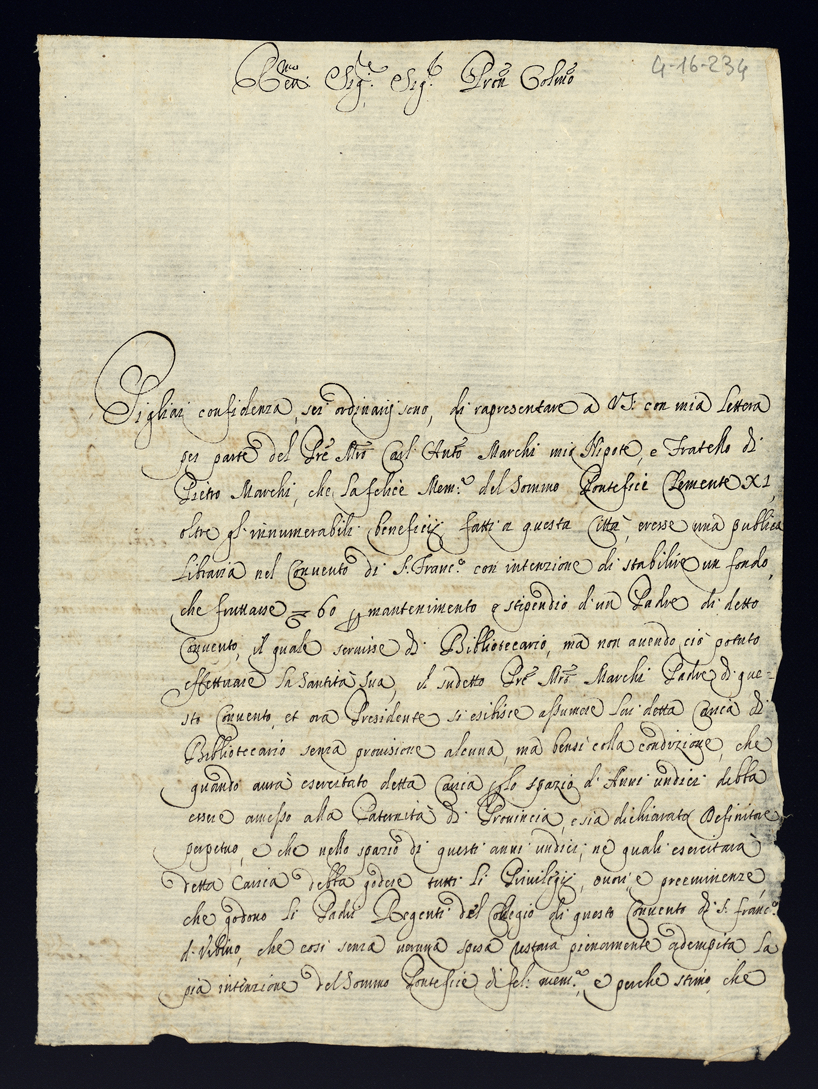 4-16-234
Rev.mo Sig.re Sig.r Pron Colmo
Pigliai confidenza, sei ordinarij sono, di rapresentare a VS: con mia Lettera
per parte del Pre Mro Carl' Anto Marchi mio Nipote, e Fratello di
Pietro Marchi, che la felice Mem.a del Sommo Pontefice Clemente XI,
oltre gl'innumerabili beneficij fatti a questa Città, eresse una publica
Libraria nel Convento di S. Franc.o con intenzione di stabilire un fondo,
che fruttasse 60 mantenimento e stipendio d'un Padre di detto
Convento, il quale servisse di Bibliotecario, ma non avendo ciò potuto
effettuare la Santità Sua, il sudetto Pre Mro Marchi Padre di que=
sto Convento, et ora Presidente si esibisce assumere lui detta Carica di
Bibliotecario senza provisione alcuna, ma bensi colla condizione, che
quando aurà esercitato detta Carica lo spazio d'Anni undici debba
essere amesso alla Paternità di Provincia, e sia dichiarato Definitore
perpetuo, e che nello spazio di questi anni undici, ne quali esercitarà
detta Carica debba godere tutti li Privilegij, onori, e preeminenze,
che godono li Padri Regenti del Collegio di questo Convento di S. Franc.o
d'Urbino, che così senza veruna spesa restarà pienamente adempita la
pia intenzione del Sommo Pontefice di fel: mem.a, e perche stimo, che